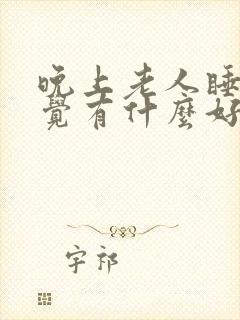 晚上老人睡
覺有什麼好
宇祁